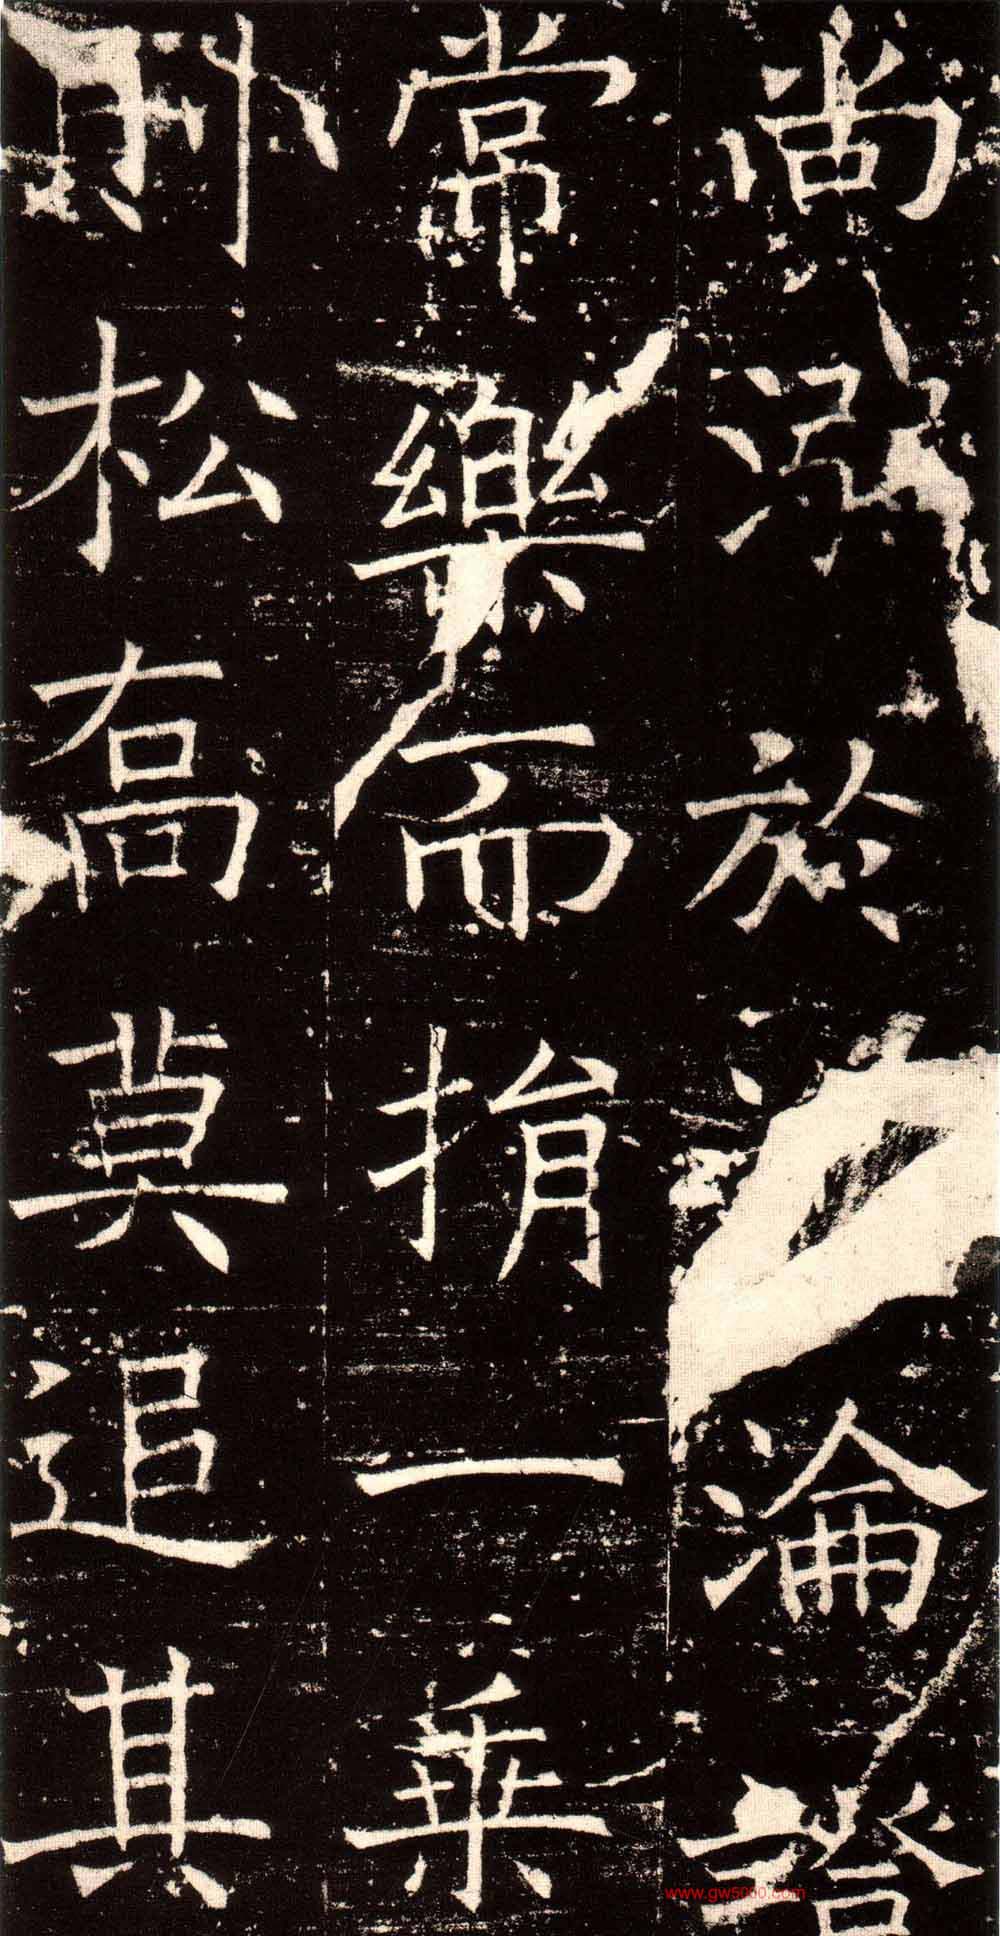 尚於淪證
常樂而捐一乘
則松喬莫追其
www.gw5000.com